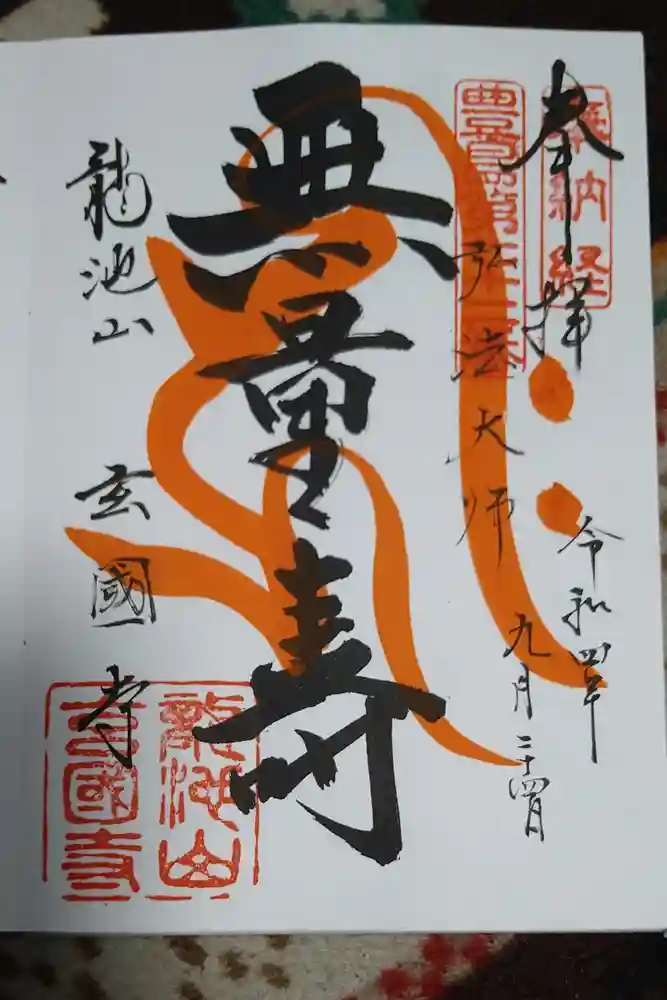 奉拝
奉納経
令和四年
九月二十四日
弘法大師
無量壽
龍池山
玄國寺
龍池山
玄國寺